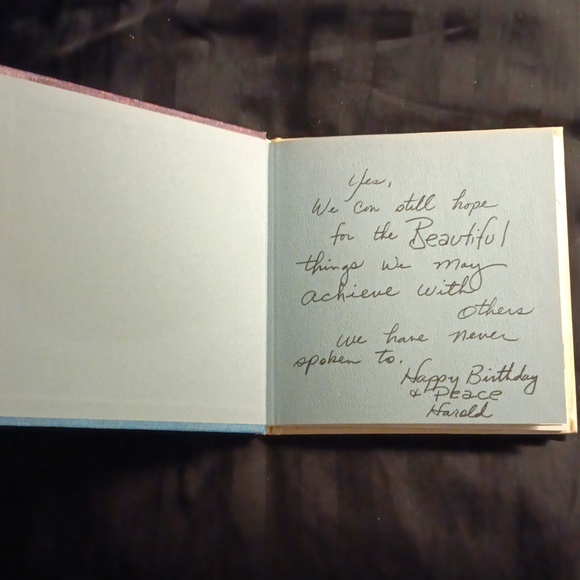 Yes,
We can still hope
for the Beautiful
things we may
achieve with
others
we have never
spoken to.
Happy Birthday
& Peace
Harold